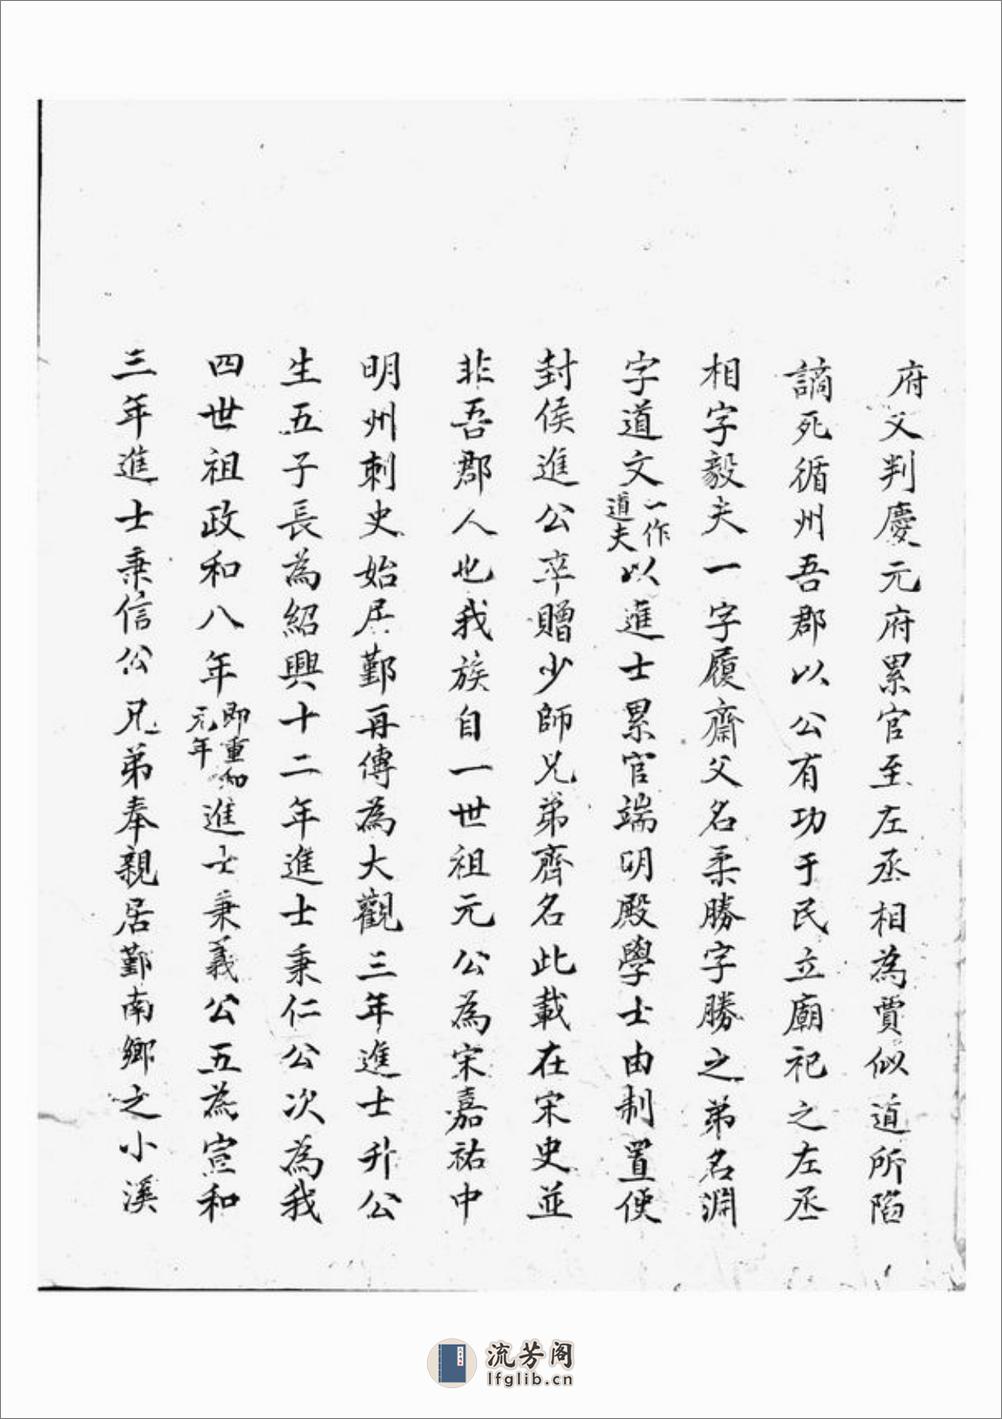 府父判慶元府累官至左丞相為賈似道所陷
謫死循州吾郡以公有功于民立廟祀之左丞
相字毅夫一字履齋父名柔勝字勝之弟名淵
字道文一作道夫以進士累官端明殿學士由制置使
封侯進公卒贈少師兄弟齊名此載在宋史並
非吾郡人也我族自一世祖元公為宋嘉祐中
明州刺史始居鄞再傳為大觀三年進士升公
生五子長為紹興十二年進士秉仁公次為我
四世祖政和八年即重和元年進士秉義公五為宣和
三年進士秉信公兄弟奉親居鄞南鄉之小溪
流芳阁
lfglib.cn